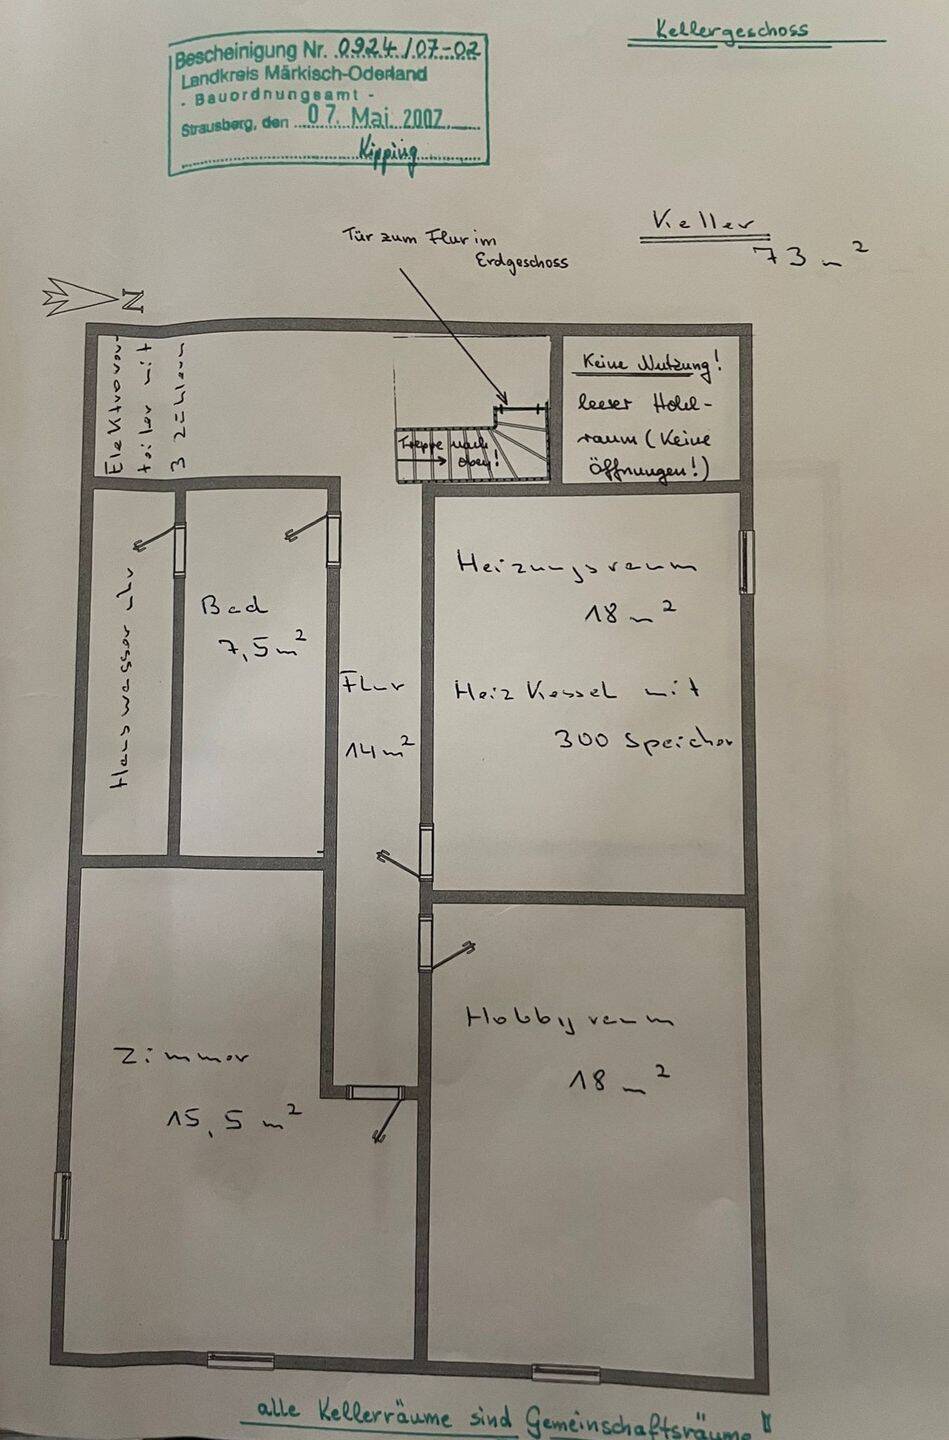 Kellergeschoss
Bescheinigung Nr. 0924/07-02
Landkreis Märkisch-Oderland
- Bauordnungsamt -
Strausberg, den 07. Mai 2007
Kipping
Keller
73 m²
Tür zum Flur im
Erdgeschoss
N
Elektrover-
teiler mit
3 Zählern
Treppe nach
oben!
Keine Nutzung!
leerer Hohl-
raum (Keine
Öffnungen!)
Hauswasser uhr
Bad
7,5 m²
Flur
14 m²
Heizungsraum
18 m²
Heiz Kessel mit
300 Speicher
Zimmer
15,5 m²
Hobbyraum
18 m²
alle Kellerräume sind Gemeinschaftsräume!